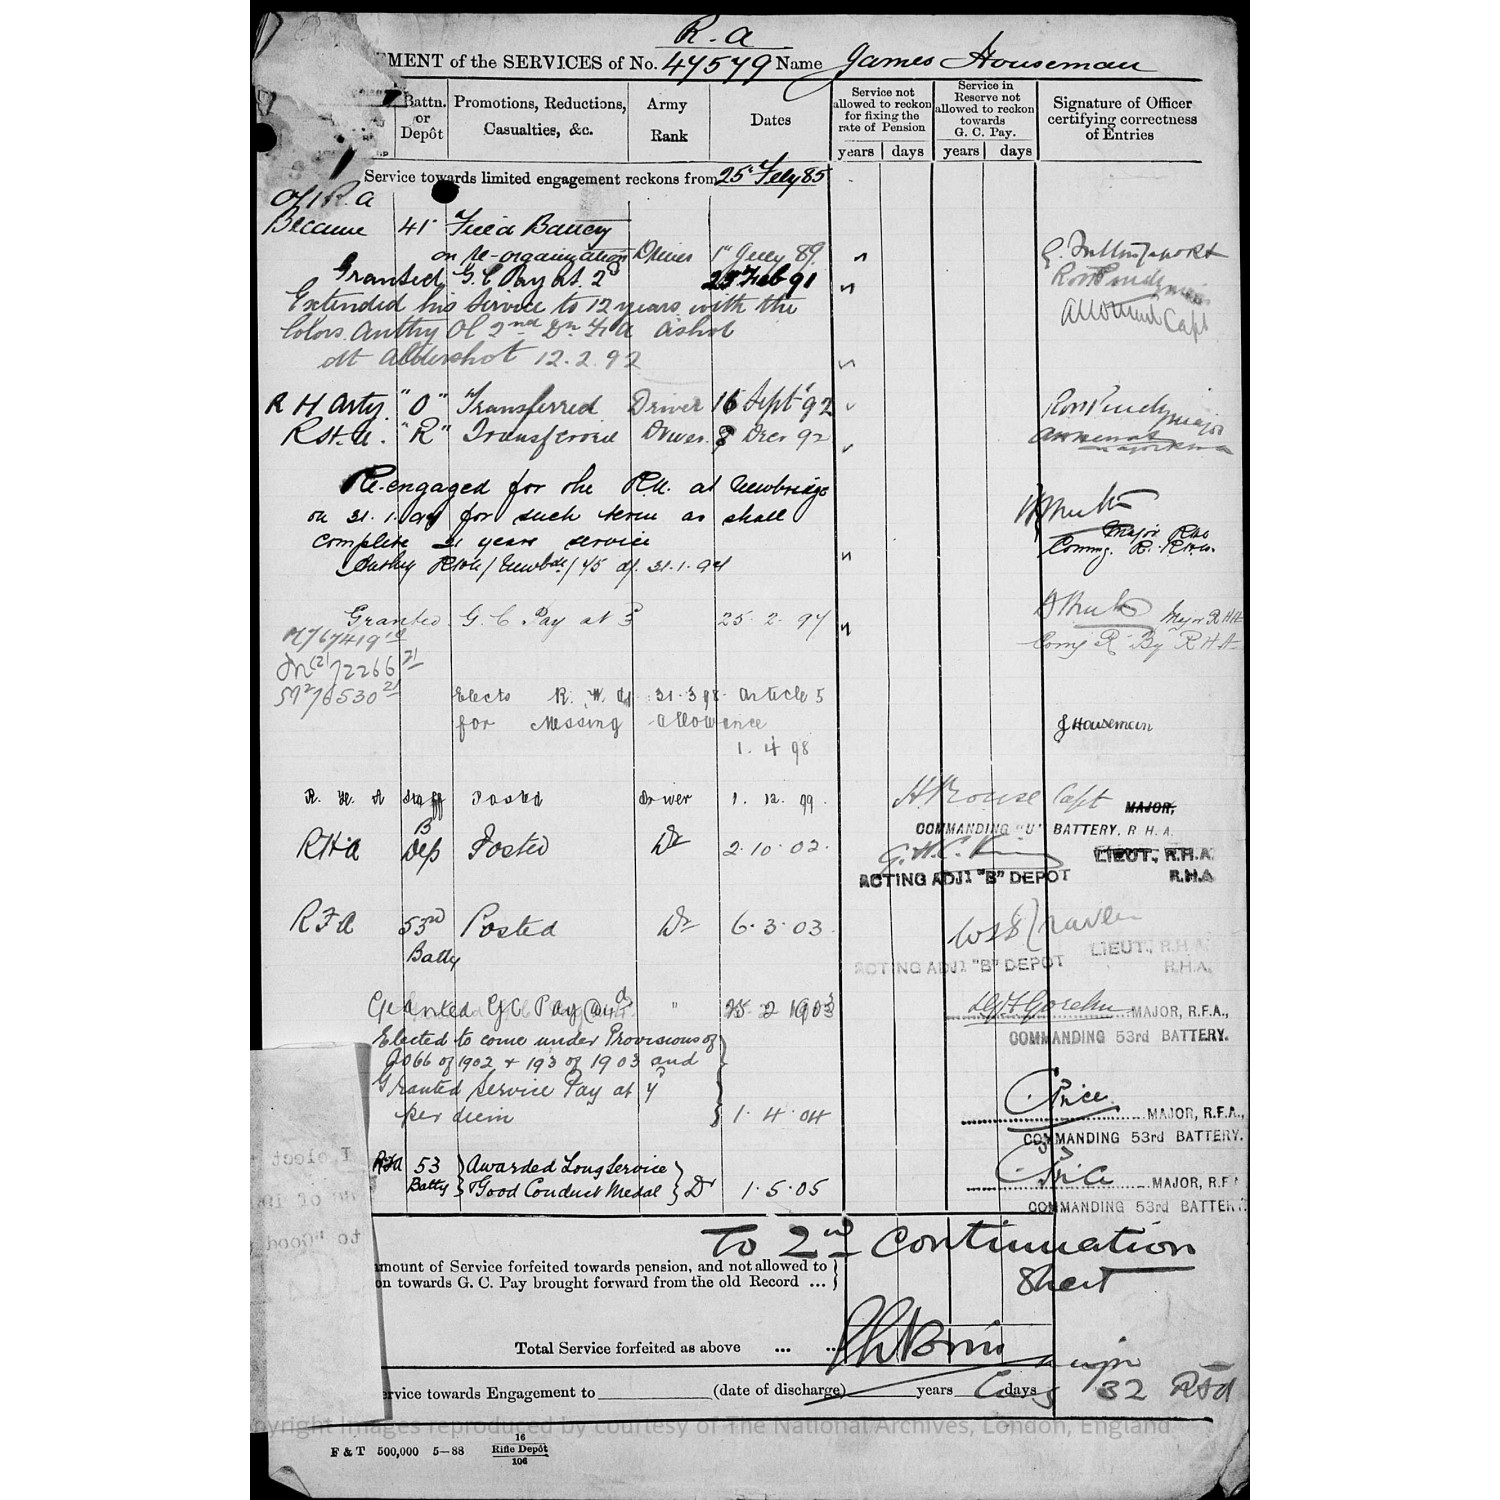 R.A
MENT of the SERVICES of No. 47579 Name James Houseman
Battn. or Depôt
Promotions, Reductions, Casualties, &c.
Army Rank
Dates
Service not allowed to reckon for fixing the rate of Pension
Service in Reserve not allowed to reckon towards G. C. Pay.
Signature of Officer certifying correctness of Entries
years days years days
Service towards limited engagement reckons from 25 Feby 85
R.A
Became 41 Field Battery
on re-organization Driver 1 July 89.
Granted G C Pay at 2d 25 Feb 91
Extended his Service to 12 years with the
Colors. Authy OC 2nd Dn F A Ashot
At Aldershot 12.2.92
Capt
R H Arty. "O" Transferred Driver 16 Sept 92
R.H.A. "R" Transferred Driver. 8 Decr 92
Major
Re-engaged for the R.A. at Newbridge
on 31.1.94 for such term as shall
complete 21 years service
Authy RHA/Newbde/45 of 31.1.94
Major RHA
Commg. R. R.H.A.
Granted G. C Pay at 3 25.2.97
Major R H A
Comg R By R H A
M/67419
72266 21
76530 21
Elects R. W. of 31.3.98. Article 5
for Messing Allowance
1.4.98
J Houseman
R. H. A Staff Posted Driver 1.12.99.
H. Rouse Capt MAJOR,
COMMANDING "U" BATTERY, R H A.
RHA B Dep Posted Dr 2.10.02.
LIEUT., R.H.A.
ACTING ADJT "B" DEPOT R.H.A
RFA 53rd Batty Posted Dr 6.3.03
LIEUT., R.H.A.
ACTING ADJT "B" DEPOT R.H.A.
Granted GC Pay @ 4d " 25 2 1903
MAJOR, R.F.A.,
COMMANDING 53rd BATTERY.
Elected to come under Provisions of
AO 66 of 1902 & 193 of 1903 and
Granted Service Pay at 4d
per diem 1.4.04
C Price MAJOR, R.F.A.,
COMMANDING 53rd BATTERY.
RFA 53 Batty Awarded Long Service
& Good Conduct Medal Dr 1.5.05
C Price MAJOR, R.F.A
COMMANDING 53rd BATTERY.
I elect
of
to "Good
To 2nd Continuation
Sheet
mount of Service forfeited towards pension, and not allowed to
on towards G. C. Pay brought forward from the old Record ...
Total Service forfeited as above ... ..
Major
ervice towards Engagement to (date of discharge) years days
Comg 32 RFA
pyright images reproduced by courtesy of The National Archives, London, England
F & T 500,000 5—88
16
Rifle Depôt
106